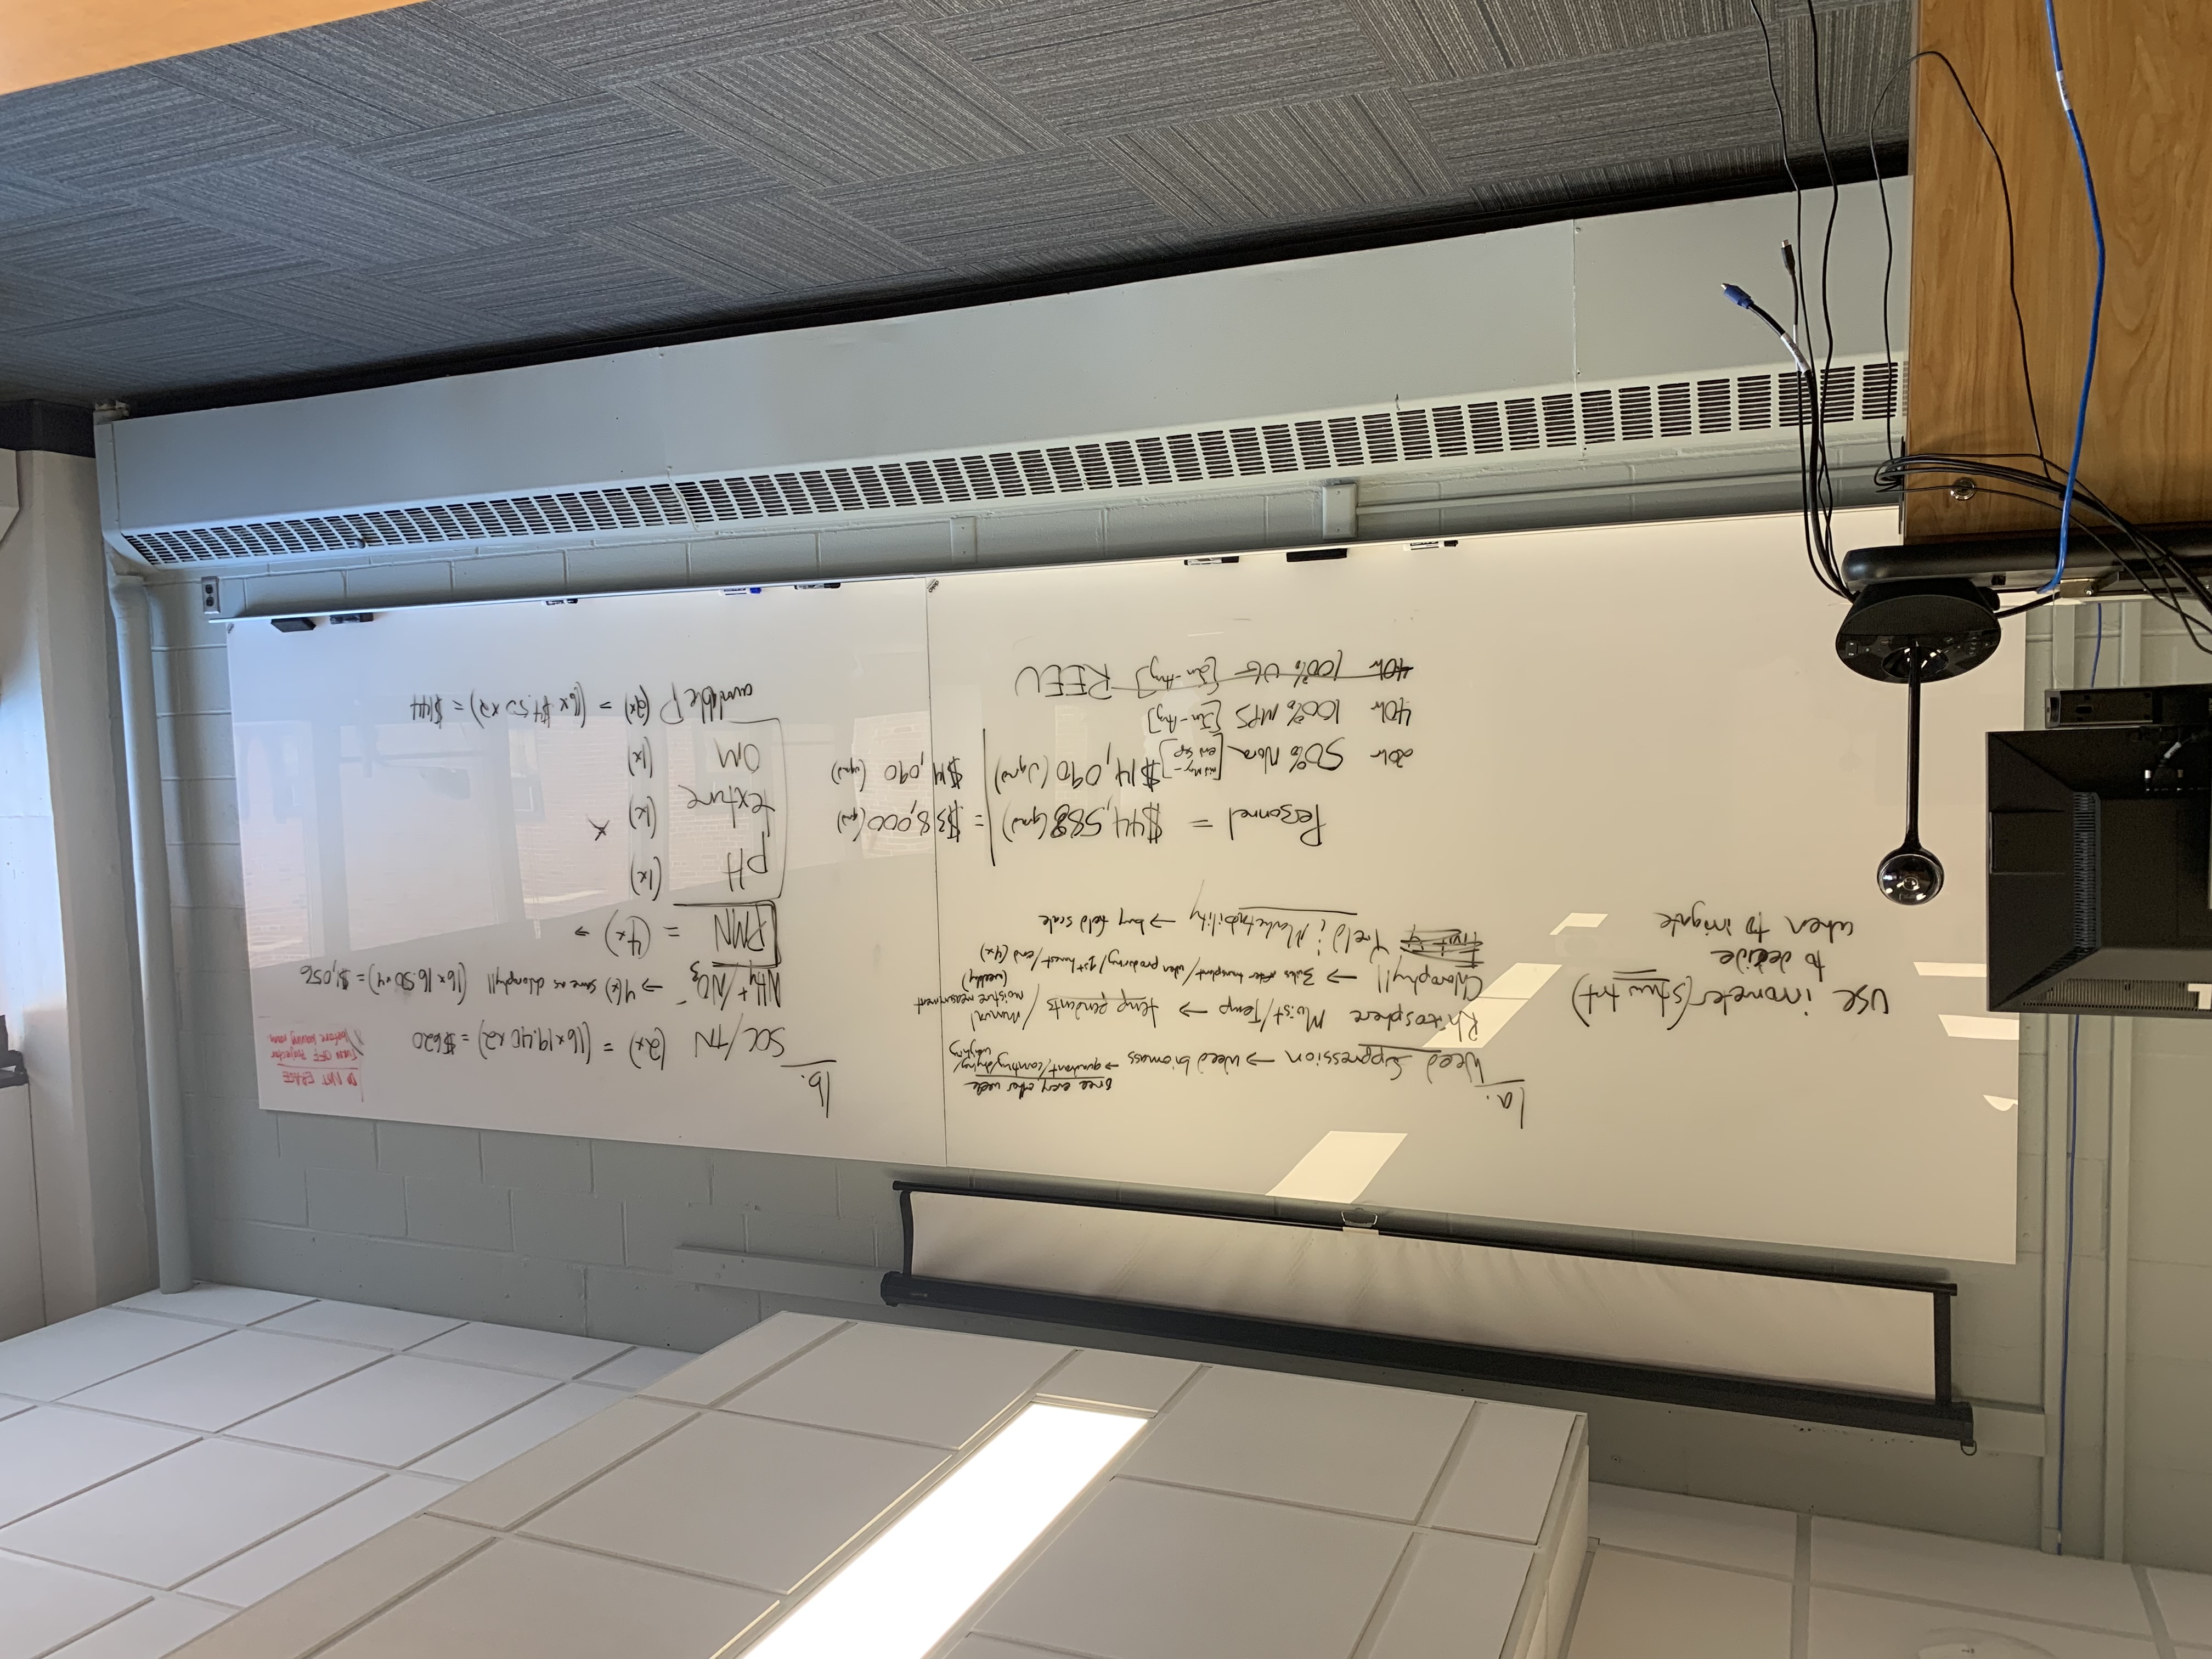 use irrometer (straw trt)
to decide
when to irrigate
1a.
Weed Suppression → weed biomass → quadrant/counting/drying/weighing
once every other week
Rhizosphere Moist/Temp → temp pendants / manual moisture measurement (weekly)
Chlorophyll → 3wks after transplant/when producing/1st harvest/end (4x)
Yield & Marketability → buy field scale
Personnel = $44,588 (grad) = $38,000 (grad)
$14,090 (Ugrad) $14,090 (ugrad)
20hr 50% Nora [mid May - end Sep]
40hr 100% MPS [Jun-Aug]
40hr 100% UG [Jun-Aug] REEU
1b.
SOC/TN (2x) = (16x19.40x2) = $620
NH4+/NO3- → 4(x) same as chlorophyll (16x16.50x4) = $1,056
PMN = (4x) →
pH (1x)
texture (1x) *
OM (1x)
available P (2x) = (16x $4.50 x2) = $144
DO NOT ERASE
Turn OFF Projector
before leaving room.